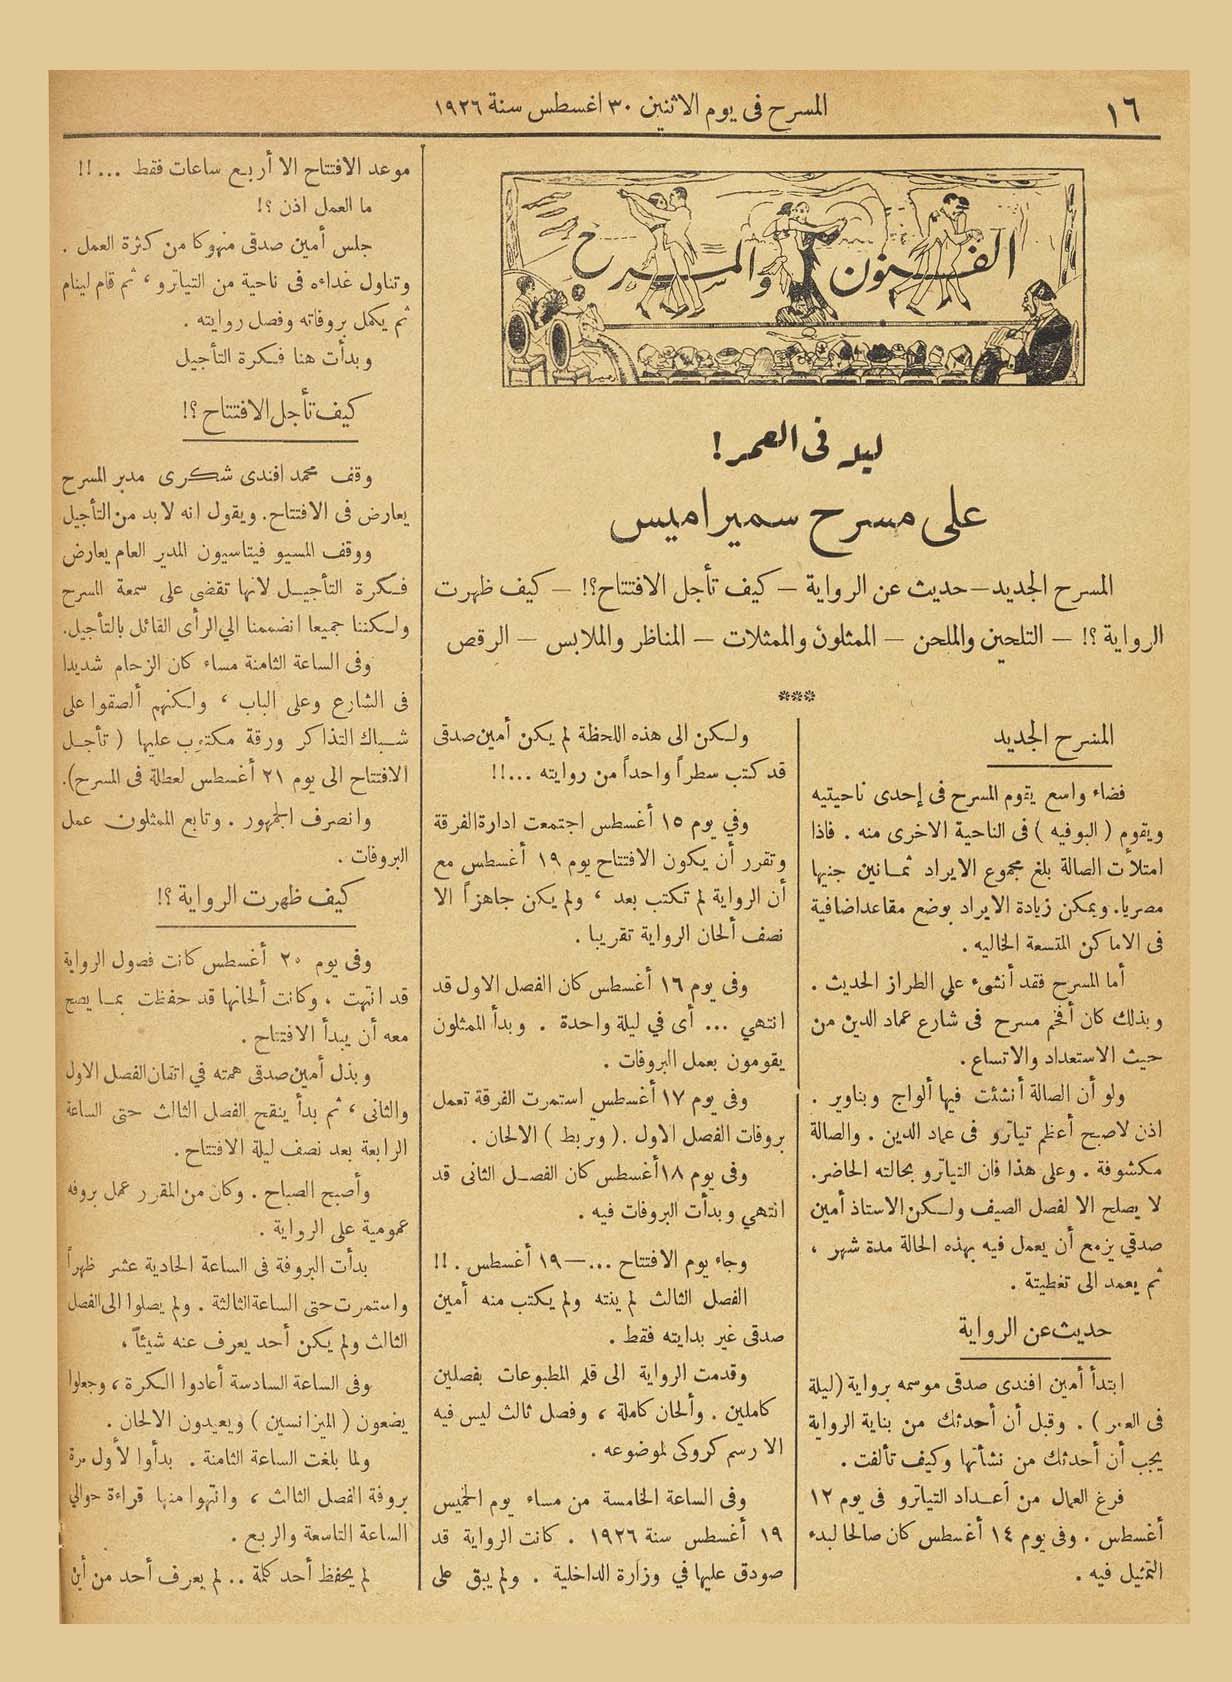 ١٦
المسرح فى يوم الاثنين ٣٠ اغسطس سنة ١٩٢٦
الفنون والمسرح
ليلة فى العمر !
على مسرح سميراميس
المسرح الجديد — حديث عن الرواية — كيف تأجل الافتتاح؟! — كيف ظهرت
الرواية ؟! — التلحين والملحن — الممثلون والممثلات — المناظر والملابس — الرقص
***
المسرح الجديد
فضاء واسع يقوم المسرح فى إحدى ناحيتيه
ويقوم ( البوفيه ) فى الناحية الاخرى منه . فاذا
امتلأت الصالة بلغ مجموع الايراد ثمـانين جنيها
مصريا. ويمكن زيادة الايراد بوضع مقاعد اضافية
فى الاماكن المتسعة الخاليه .
أما المسرح فقد أنشىء على الطراز الحديث .
وبذلك كان أفخم مسرح فى شارع عماد الدين من
حيث الاستعداد والاتساع .
ولو أن الصالة أنشئت فيها ألواج وبناوير .
اذن لاصبح أعظم تياترو فى عماد الدين . والصالة
مكشوفة . وعلى هذا فان التياترو بحالته الحاضر.
لا يصلح الا لفصل الصيف ولـكن الاستاذ أمين
صدقي يزمع أن يعمل فيه بهذه الحالة مدة شهر ،
ثم يعمد الى تغطيتة .
حديث عن الرواية
ابتدأ أمين افندى صدقى موسمه برواية (ليلة
فى العمر ) . وقبل أن أحدثك من بناية الرواية
يجب أن أحدثك من نشأتها وكيف تألفت .
فرغ العمال من أعـداد التياترو فى يوم ١٢
أغسطس . وفى يوم ١٤ أغسطس كان صالحا لبدء
التمثيل فيه .
ولـكن الى هذه اللحظة لم يكن أمين صدقى
قد كتب سطراً واحداً من روايته ...!!
وفي يوم ١٥ أغسطس اجتمعت ادارة الفرقة
وتقرر أن يكون الافتتاح يوم ١٩ أغسطس مع
أن الرواية لم تكتب بعد ، ولم يكن جاهزاً الا
نصف ألحان الرواية تقريبا .
وفى يوم ١٦ أغسطس كان الفصل الاول قد
انتهي ... أى في ليلة واحدة . وبدأ الممثلون
يقومون بعمل البروفات .
وفى يوم ١٧ أغسطس استمرت الفرقة تعمل
بروفات الفصل الاول . ( وتربط ) الالحان .
وفى يوم ١٨ أغسطس كان الفصـل الثانى قد
انتهي وبدأت البروفات فيه .
وجاء يوم الافتتاح ...— ١٩ أغسطس . !!
الفصل الثالث لم ينته ولم يكتب منه أمين
صدقى غير بدايته فقط .
وقدمت الرواية الى قلم المطبوعات بفصلين
كاملين . وألحان كاملة ، وفصل ثالث ليس فيه
الا رسم كروكى لموضوعه .
وفى الساعة الخامسة من مساء يوم الخميس
١٩ أغسطس سنة ١٩٢٦ . كانت الرواية قد
صودق عليها في وزارة الداخلية . ولم يبق على
موعد الافتتاح الا أربـع ساعات فقط ...!!
ما العمل اذن ؟!
جلس أمين صدقى منهوكا من كثرة العمل .
وتناول غداءه فى ناحية من التياترو ، ثم قام لينام
ثم يكمل بروفاته وفصل روايته .
وبدأت هنا فـكرة التأجيل
كيف تأجل الافتتاح ؟!
وقف محمد افندى شكرى مدير المسرح
يعارض فى الافتتاح. ويقول انه لابد من التأجيل
ووقف المسيو فيتاسيون المدير العام يعارض
فـكرة التأجيـل لانها تقضى على سمعة المسرح
ولـكننا جميعا انضممنا الي الرأى القائل بالتأجيل.
وفى الساعة الثامنة مساء كان الزحام شديدا
فى الشارع وعلى الباب ، ولـكنهم ألصقوا على
شـباك التذاكر ورقة مكتوب عليها ( تأجـل
الافتتاح الى يوم ٢١ أغسطس لعطلة فى المسرح).
وانصرف الجمهور . وتابع الممثلون عمل
البروفات .
كيف ظهرت الرواية ؟!
وفى يوم ٢٠ أغسطس كانت فصول الرواية
قد انتهت ، وكانت ألحانها قد حفظت بمـا يصح
معه أن يبدأ الافتتاح .
وبذل أمين صدقى همته في اتقان الفصل الاول
والثانى ، ثم بدأ ينقح الفصل الثالث حتى الساعة
الرابعة بعد نصف ليلة الافتتاح .
وأصبح الصباح . وكان من المقرر عمل بروفه
عمومية على الرواية .
بدأت البروفة فى الساعة الحادية عشر ظهراً
واستمرت حتى الساعة الثالثة . ولم يصلوا الى الفصل
الثالث ولم يكن أحد يعرف عنه شيئاً ،
وفى الساعة السادسة أعادوا الـكرة ، وجعلوا
يضعون ( الميزانسين ) ويعيدون الالحان .
ولما بلغت الساعة الثامنة . بدأوا لأول مرة
بروفة الفصل الثالث ، وانتهوا منها قراءة حوالي
الساعة التاسعة والربع .
لم يحفظ أحد كلمة .. لم يعرف أحد من أين